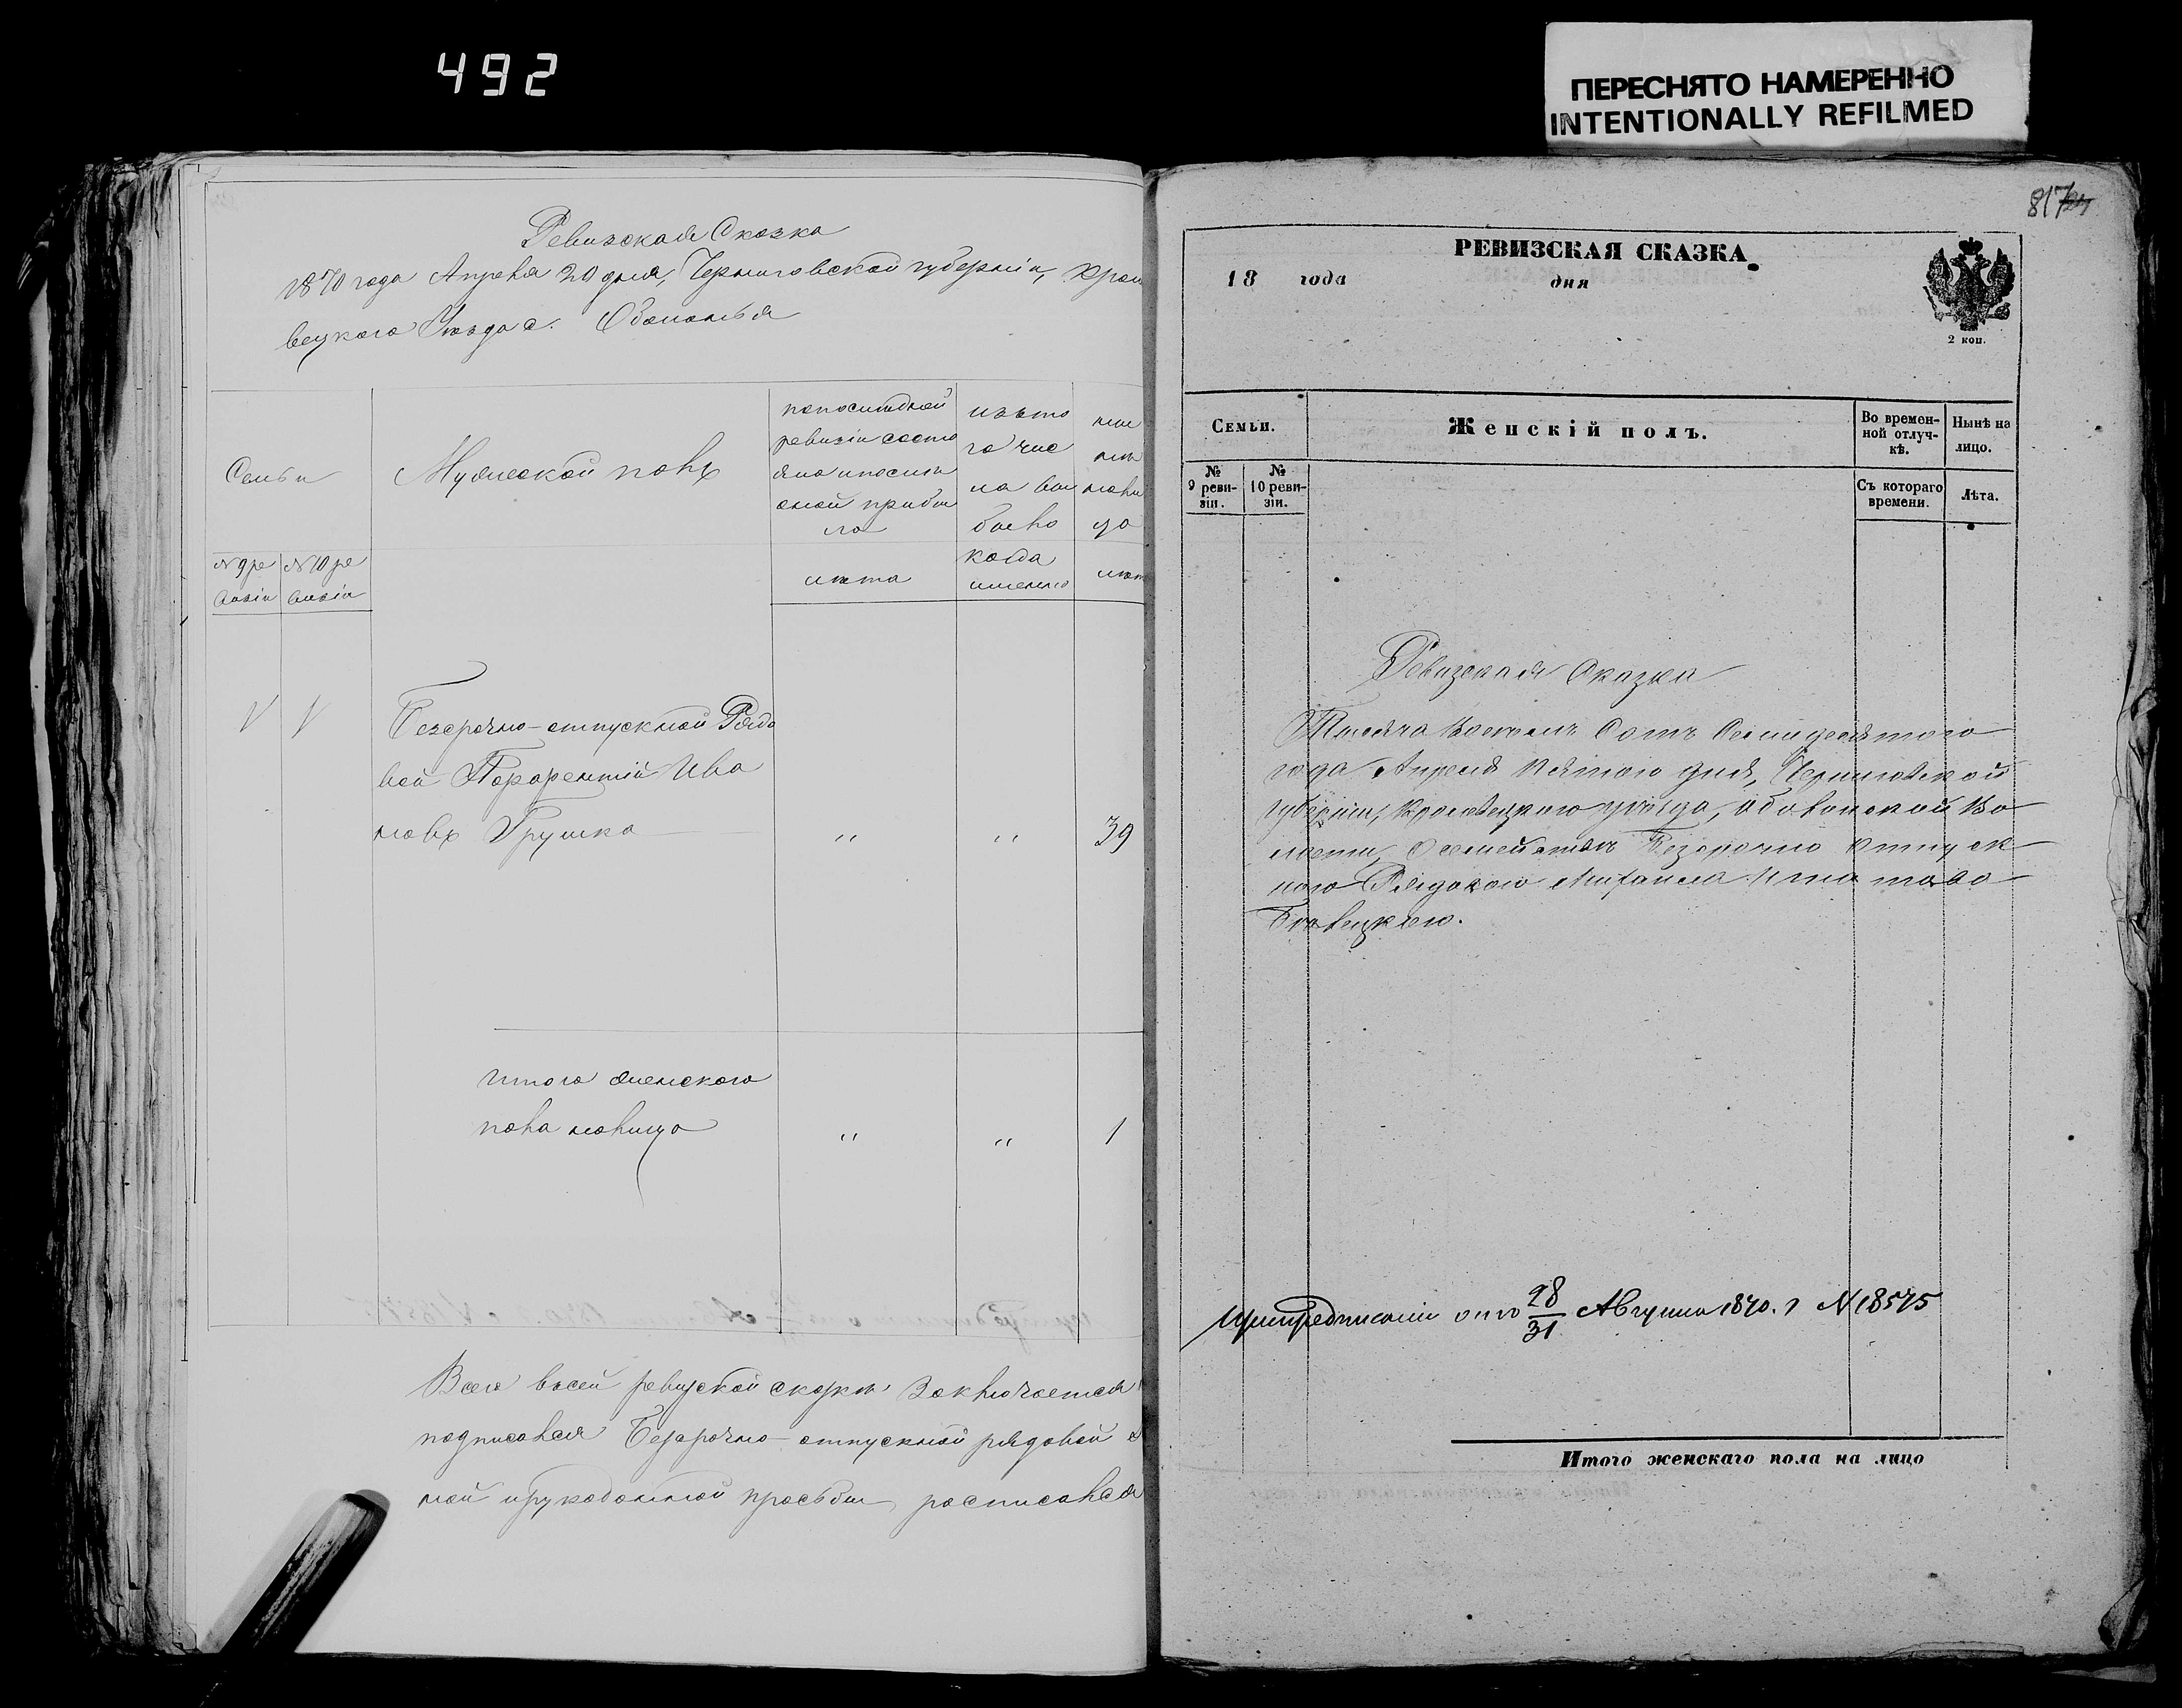 492
ПЕРЕСНЯТО НАМЕРЕННО
INTENTIONALLY REFILMED
Ревизская Сказка
1870 года Апреля 20 дня, Черниговской губерніи, Кроле
вецкого Уѣзда с. Обтонья
Семьи
Мужеской полъ
по последней
ревизіи состо
яло и после
оной прибы
ло
изъ то
го чис
ла вы
было
ны
не
на ли
цо
№ 9 ре
визіи
№ 10 ре
визіи
лѣта
когда
именно
лѣт
Безсрочно-отпускной Рядо
вой Ива
новъ Грушка
" " 39
Итого женского
пола налицо
" " 1
Всего в сей ревизской сказкѣ заключается
подписался Безсрочно-отпускной рядовой
ной и рукоданной прозьбы, росписался
817
РЕВИЗСКАЯ СКАЗКА
18 года дня
2 коп.
Семьи.
Женскій полъ.
Во времен-
ной отлуч-
кѣ.
Нынѣ на
лицо.
№
9 реви-
зіи.
№
10 реви-
зіи.
Съ котораго
времени.
Лѣта.
Ревизская Сказка
Тысяча Восемь Сотъ Семидесятого
года Апреля Пятого дня, Черниговской
губерніи, Кролевецкого уѣзда, Во
лости, О семействѣ Безсрочно Отпуск
ного Рядового Михаила Игнатова
При предписаніи отъ 28/31 Августа 1870. г № 18575
Итого женскаго пола на лицо